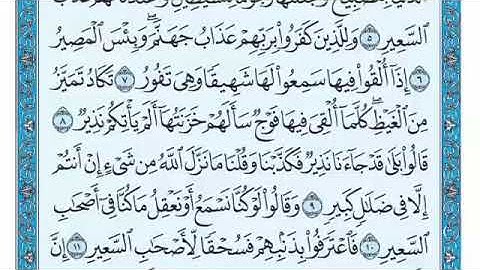 السَّعِيرِ ٥ وَلِلَّذِينَ كَفَرُوا۟ بِرَبِّهِمْ عَذَابُ جَهَنَّمَ ۖ وَبِئْسَ ٱلْمَصِيرُ
٦ إِذَآ أُلْقُوا۟ فِيهَا سَمِعُوا۟ لَهَا شَهِيقًا وَهِىَ تَفُورُ ٧ تَكَادُ تَمَيَّزُ
مِنَ ٱلْغَيْظِ ۖ كُلَّمَآ أُلْقِىَ فِيهَا فَوْجٌ سَأَلَهُمْ خَزَنَتُهَآ أَلَمْ يَأْتِكُمْ نَذِيرٌ ٨
قَالُوا۟ بَلَىٰ قَدْ جَآءَنَا نَذِيرٌ فَكَذَّبْنَا وَقُلْنَا مَا نَزَّلَ ٱللَّهُ مِن شَىْءٍ إِنْ أَنتُمْ
إِلَّا فِى ضَلَـٰلٍ كَبِيرٍ ٩ وَقَالُوا۟ لَوْ كُنَّا نَسْمَعُ أَوْ نَعْقِلُ مَا كُنَّا فِىٓ أَصْحَـٰبِ
ٱلسَّعِيرِ ١٠ فَٱعْتَرَفُوا۟ بِذَنۢبِهِمْ فَسُحْقًا لِّأَصْحَـٰبِ ٱلسَّعِيرِ ١١ إِنَّ